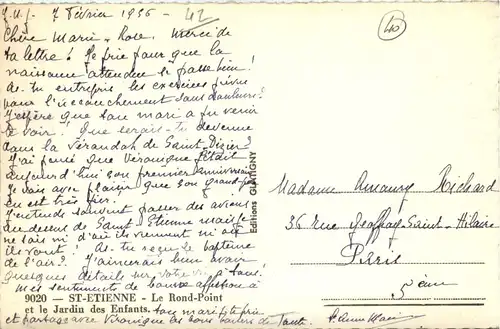 J.M.J. 7 Février 1956 - 42
40
Chère Marie-Rose, merci de
ta lettre! Je prie pour que la
naissance attendue se passe bien!
As-tu entrepris les exercices prévus
pour l'accouchement sans douleurs?
J'espère que ton mari a pu venir
te voir. Que serais-tu devenue
dans la vérandah de Saint-Dizier?
J'ai pensé que Véronique fêtait
aujourd'hui son premier anniversaire
Je vois avec plaisir que son grand-père
en est très fier.
J'entends souvent passer des avions
au dessus de Saint-Etienne mais je
ne sais ni d'où ils viennent ni où
ils vont! As-tu reçu le baptême
de l'air? J'aimerais bien avoir
quelques détails sur votre vie à tous.
Mes sentiments de bonne affection à
9020 — ST-ETIENNE - Le Rond-Point
et le Jardin des Enfants.
ton mari et
et partage avec Véronique les bons baisers de Tante.
Editions GUATIGNY
Madame Amaury Richard
36 rue Geoffroy Saint-Hilaire
Paris
5ème